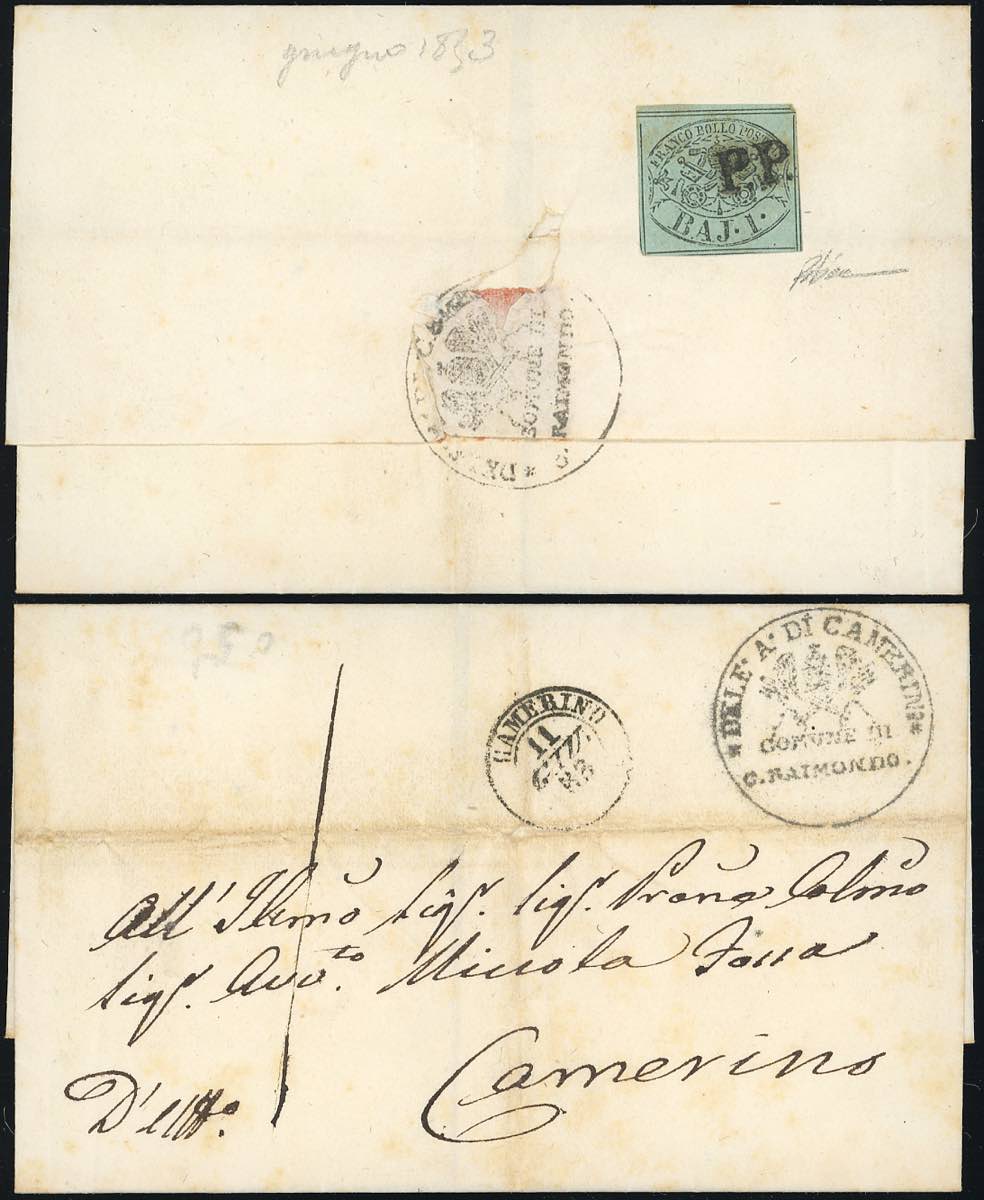 giugno 1853
FRANCO BOLLO POSTALE
P.P.
BAJ. 1.
COMUNE DI
C. RAIMONDO.
CAMERINO
11
GIU.
53
*DELE. A. DI CAMERINO*
COMUNE DI
C. RAIMONDO.
1
All' Illmo Sig. Sig. Prone Colmo
Sig. Avv.to Niccola Fossa
Camerino
D'Uffo.